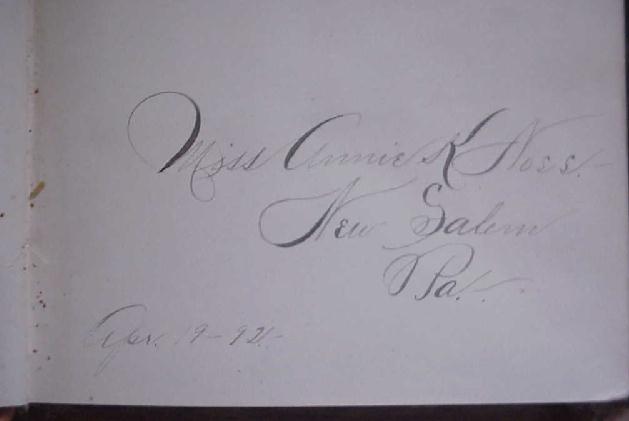 Miss Annie K Noss.
New Salem
Pa.
Apr. 19 - 92.